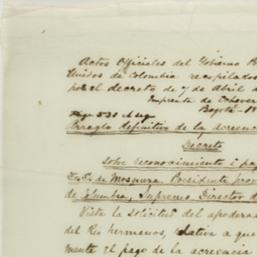 Actos Officiales del Gobierno P
Unidos de Colombia recopilados
por el decreto de 7 de Abril d
Imprenta de Echever
Bogotá - 18
Page 530 et seq
Arreglo definitivo de la acreenc
Decreto
Sobre reconocimiento i pag
T. C. de Mosquera Presidente prov
de Colombia, Supremo Director d
Vista la solicitud del apodera
del Rio hermanos, relativa a que
mente el pago de la acreencia